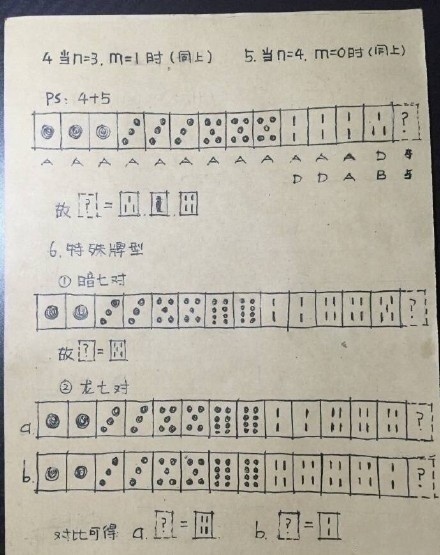 4 当n=3. m=1时 (同上) 5. 当n=4. m=0时 (同上)
PS: 4+5
?
A A A A A A A A A A A A D 4
D D A B 5
故 ? =
6. 特殊牌型
① 暗七对
?
故 ? =
② 龙七对
a. ?
b. ?
对比可得 a. ? = b. ? =